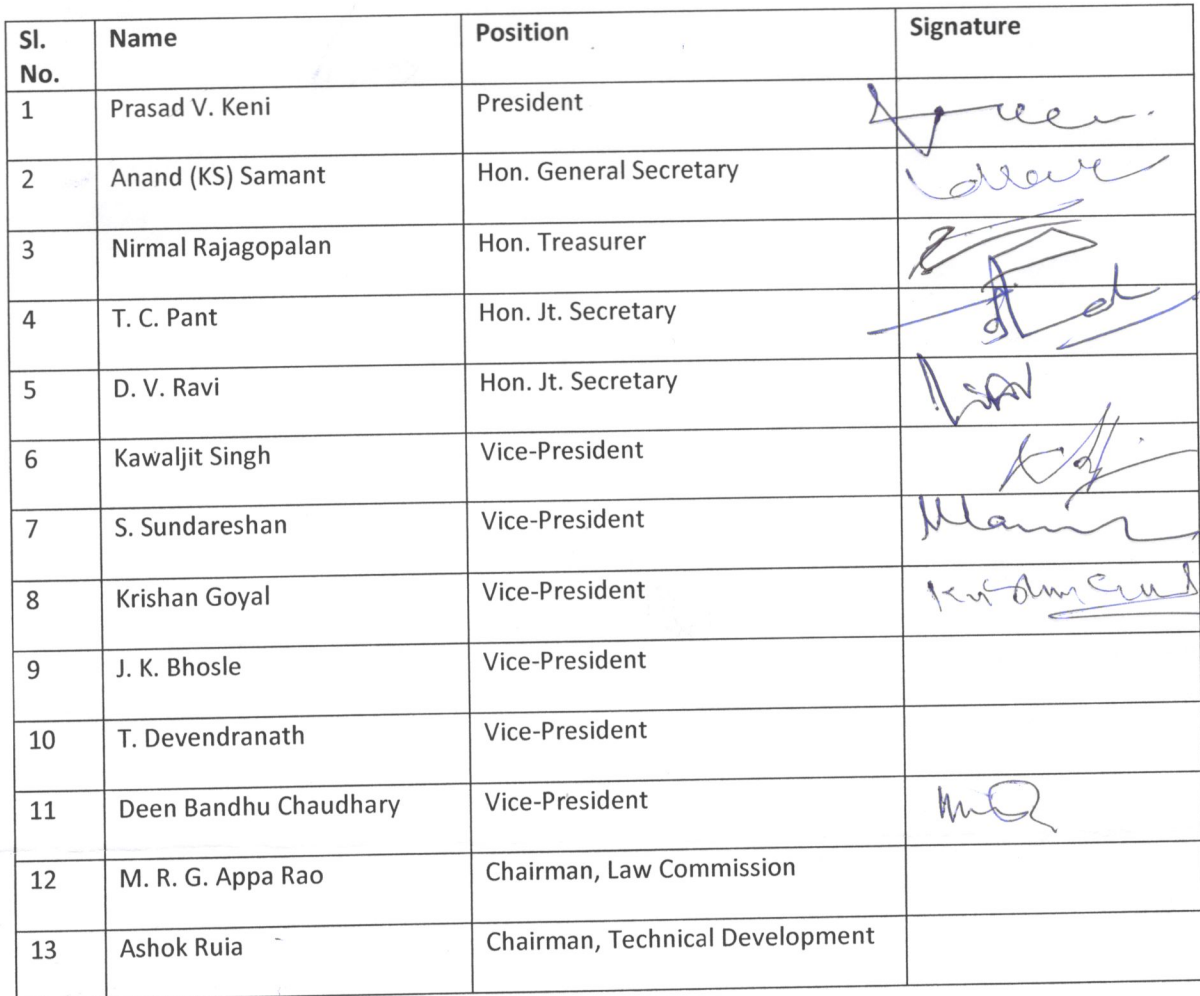 Sl. No. Name Position Signature
1 Prasad V. Keni President
2 Anand (KS) Samant Hon. General Secretary
3 Nirmal Rajagopalan Hon. Treasurer
4 T. C. Pant Hon. Jt. Secretary
5 D. V. Ravi Hon. Jt. Secretary
6 Kawaljit Singh Vice-President
7 S. Sundareshan Vice-President
8 Krishan Goyal Vice-President
9 J. K. Bhosle Vice-President
10 T. Devendranath Vice-President
11 Deen Bandhu Chaudhary Vice-President
12 M. R. G. Appa Rao Chairman, Law Commission
13 Ashok Ruia Chairman, Technical Development